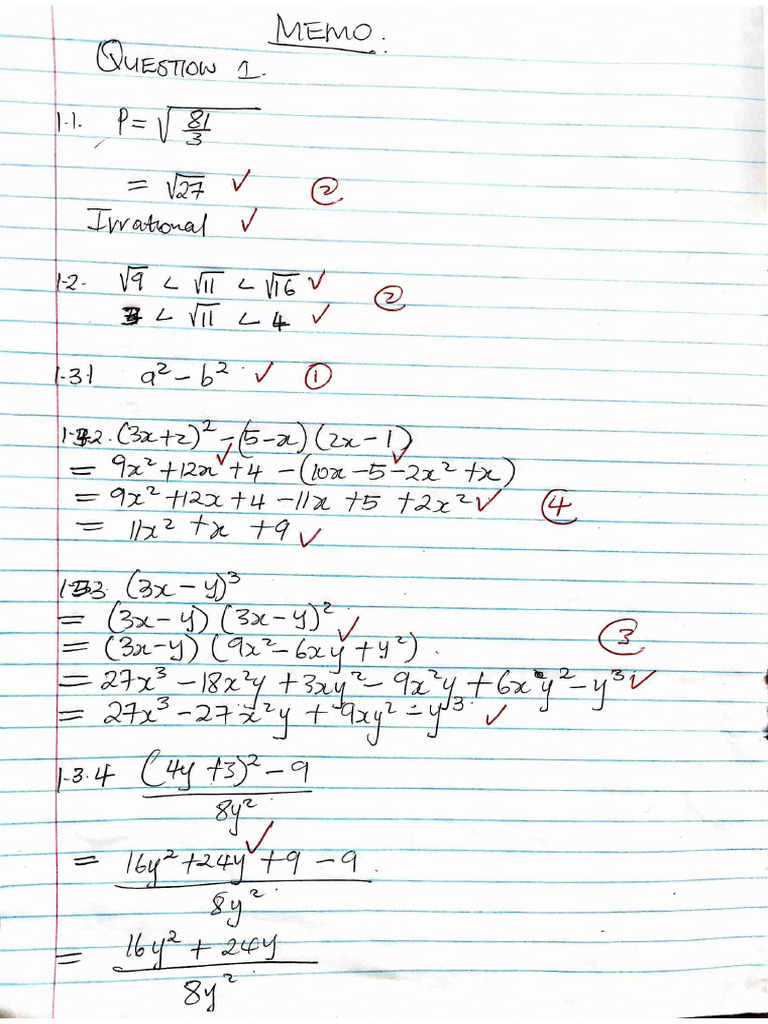 MEMO.
QUESTION 1.
1.1. P = √(81/3)
= √27 ✓ ②
Irrational ✓
1.2. √9 < √11 < √16 ✓ ②
3 < √11 < 4 ✓
1.3.1 a² - b² ✓ ①
1.3.2. (3x+2)² - (5-x)(2x-1)
= 9x² + 12x ✓ + 4 - (10x - 5 ✓ - 2x² + x)
= 9x² + 12x + 4 - 11x + 5 + 2x² ✓ ④
= 11x² + x + 9 ✓
1.3.3. (3x - y)³
= (3x - y)(3x - y)²
= (3x - y)(9x² - 6xy ✓ + y²). ③
= 27x³ - 18x²y + 3xy² - 9x²y + 6xy² - y³ ✓
= 27x³ - 27x²y + 9xy² - y³ ✓
1.3.4 ((4y + 3)² - 9)/8y²
= (16y² + 24y ✓ + 9 - 9)/8y²
= (16y² + 24y)/8y²